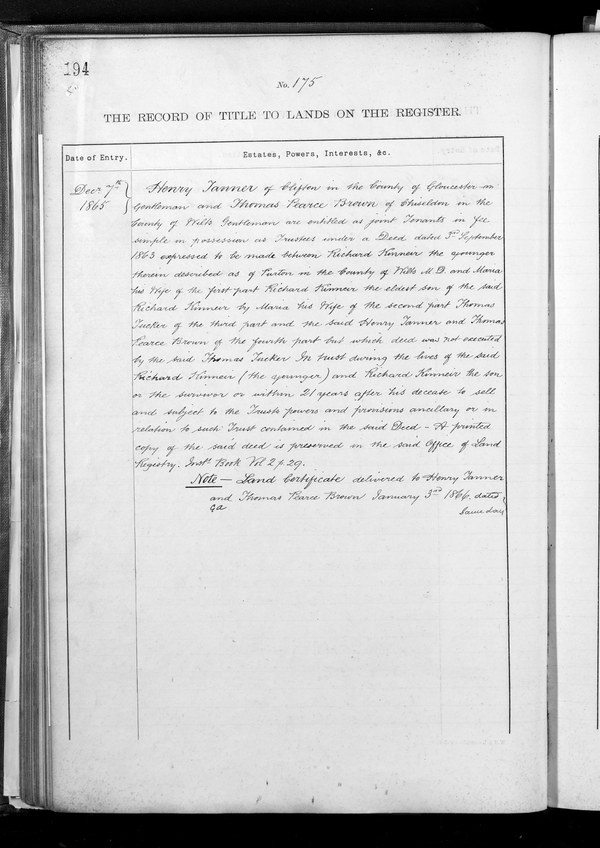 194
No. 175
THE RECORD OF TITLE TO LANDS ON THE REGISTER.
Date of Entry.
Estates, Powers, Interests, &c.
Decr 7th
1865
Henry Tanner of Clifton in the County of Gloucester
Gentleman and Thomas Pearce Brown of Chiseldon in the
County of Wilts Gentleman are entitled as joint Tenants in fee
simple in possession as Trustees under a Deed dated 3rd September
1863 expressed to be made between Richard Kinneir the younger
therein described as of Purton in the County of Wilts M.D. and Maria
his Wife of the first part Richard Kinneir the eldest son of the said
Richard Kinneir by Maria his Wife of the second part Thomas
Tucker of the third part and the said Henry Tanner and Thomas
Pearce Brown of the fourth part but which deed was not executed
by the said Thomas Tucker In trust during the lives of the said
Richard Kinneir (the younger) and Richard Kinneir the son
or the survivor or within 21 years after his decease to sell
and subject to the Trusts powers and provisions ancillary or in
relation to such Trust contained in the said Deed - A printed
copy of the said deed is preserved in the said Office of Land
Registry. Inst. Book Vol 2 p. 29.
Note - Land Certificate delivered to Henry Tanner
and Thomas Pearce Brown January 3rd 1866, dated
same day